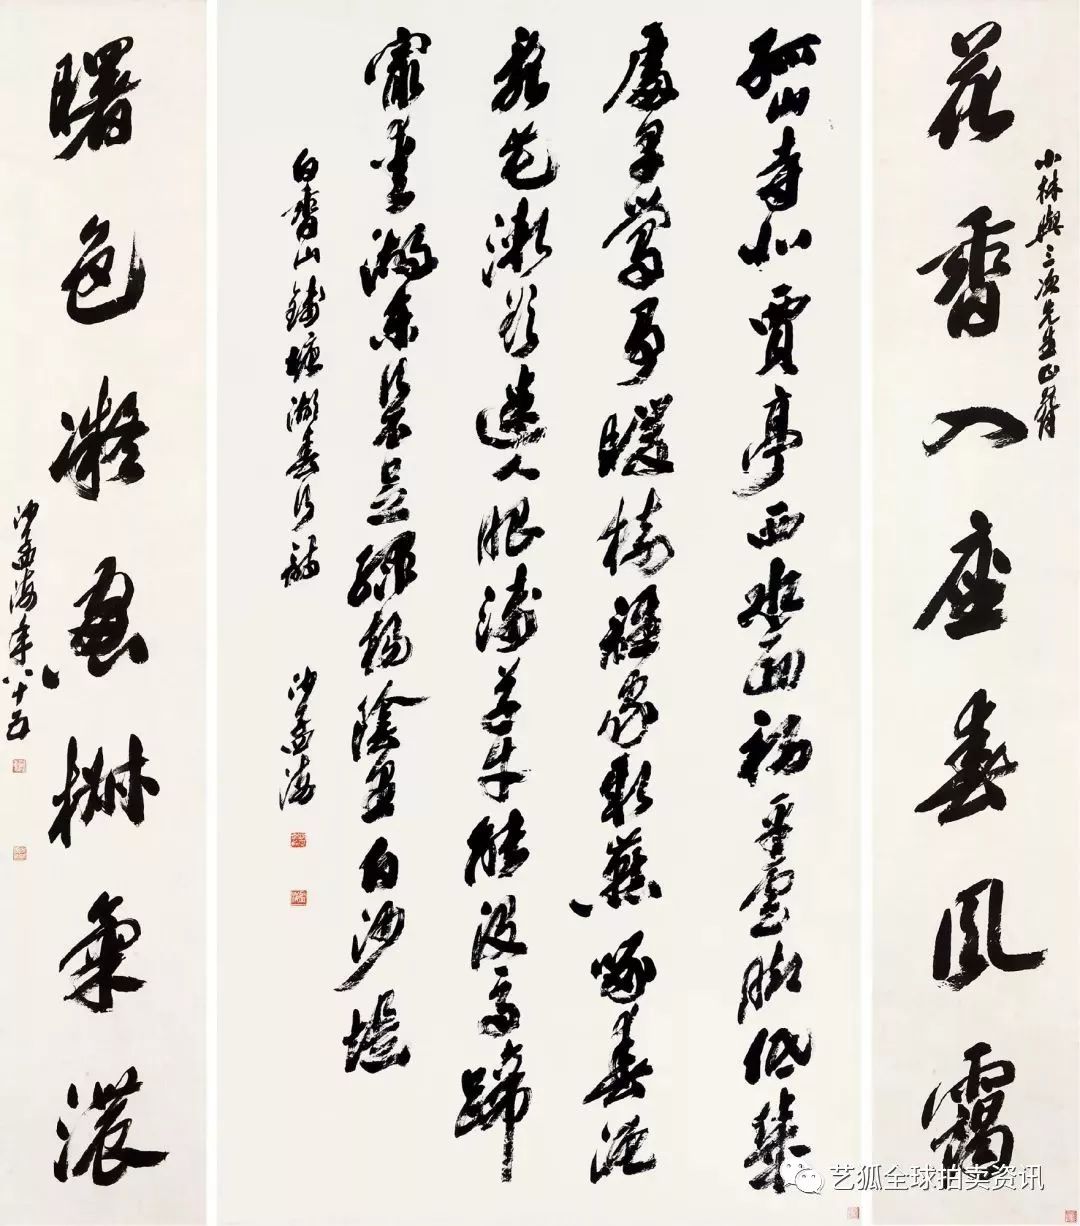 花香入座春風靄
小林與三次先生正
孤山寺北賈亭西水面初平雲腳低幾
處早鶯爭暖樹誰家新燕啄春泥
亂花漸欲迷人眼淺草才能沒馬蹄
最愛湖東行不足綠楊陰里白沙堤
白香山錢塘湖春行詩 沙孟海
曙色凝窗樹氣濃
沙孟海年八十五
艺狐全球拍卖资讯